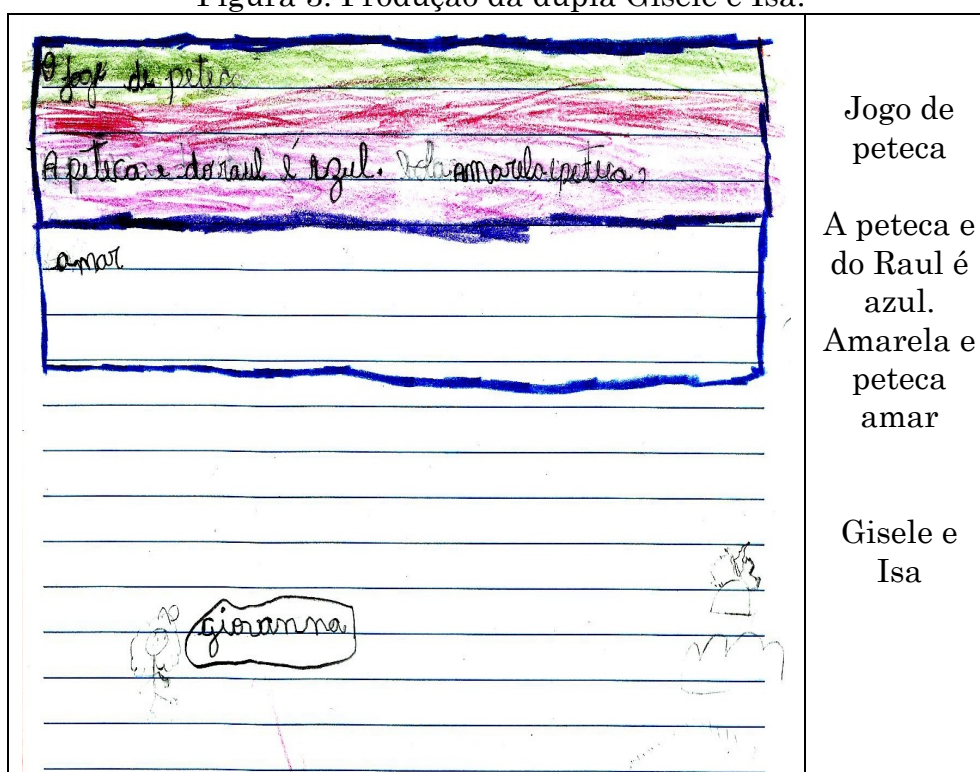 Figura 3: Produção da dupla Gisele e Isa.
O jogo de peteca
A peteca e do raul é azul. amarela e peteca
amar
giovanna
Jogo de
peteca
A peteca e
do Raul é
azul.
Amarela e
peteca
amar
Gisele e
Isa